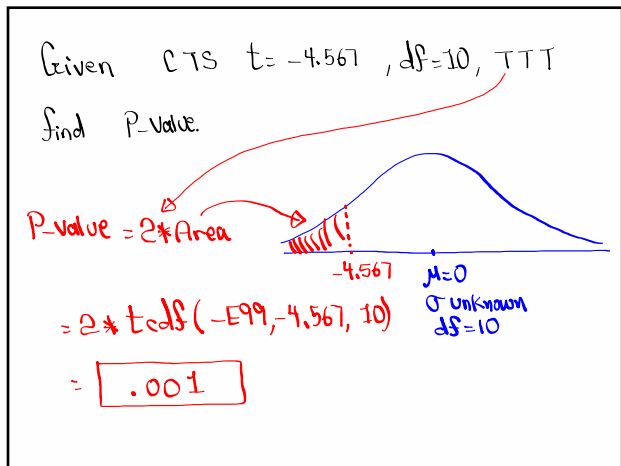 Given CTS t=-4.567 , df=10, TTT
find P-Value.
P-value = 2*Area
-4.567
μ=0
σ unknown
df=10
= 2* tcdf(-E99,-4.567, 10)
= .001